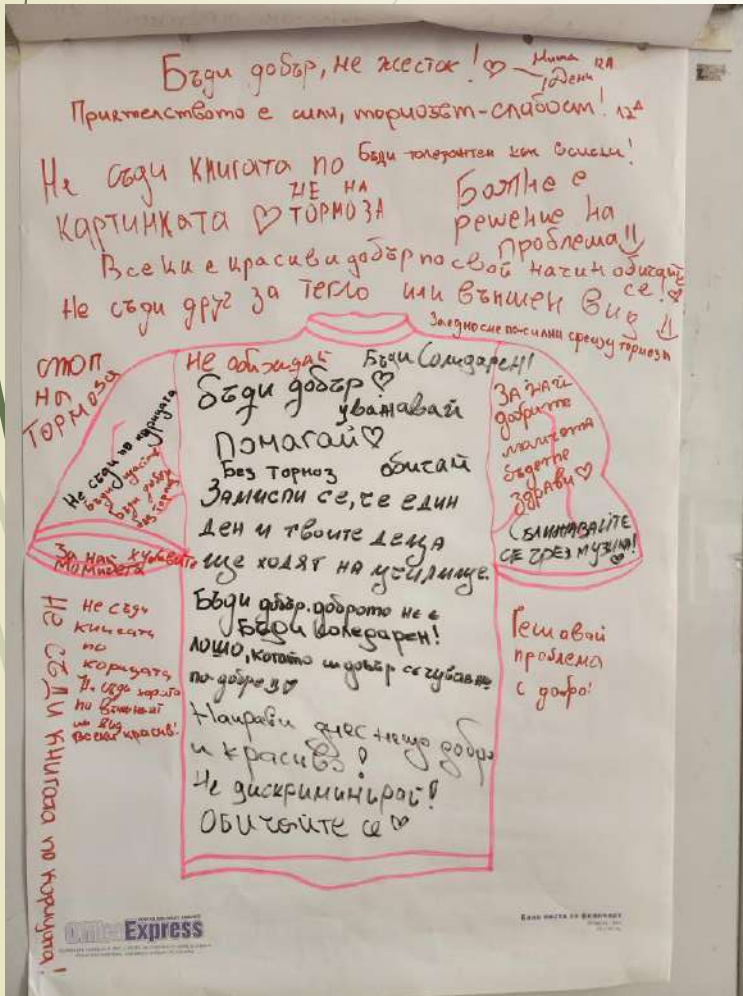 Бъди добър, не жесток! ♡ Мити 12А
Дени
Приятелството е сила, тормозът-слабост! 12А
Не съди книгата по
картинката ♡
Бъди толерантен към всички!
НЕ НА
ТОРМОЗА
решение на
проблема
Всеки е красив и добър по свой начин обичайте
се! ♡
Не съди друг за тегло или външен вид
Заедно сме по-силни срещу тормоза
СТОП
НА
ТОРМОЗА
Не обиждай
Бъди Солидарен!
Бъди добър ♡
уважавай
Помагай ♡
Без тормоз обичай
Замисли се, че един
ден и твоите деца
ще ходят на училище.
Бъди добър. доброто не е
Бъди солидарен!
лошо, когато си добър се чувстваш
по-добрe ♡
Направи днес нещо добро
и красиво!
Не дискриминирай!
Обичайте се ♡
Не съди по корицата
Бъди
Бъди добър
без тормоз
За най-хубавите
момичета
ЗА НАЙ
добрите
момичета
бъдете
здрави ♡
СБЛИЖАВАЙТЕ
СЕ ЧРЕЗ МУЗИКА!
Не съди
книгата
по
корицата
Не съди хората
по външния
им вид
всеки е красив!
Не съди книгата по корицата!
Решавай
проблема
с добро!
Office Express
Бели листа за флипчарт